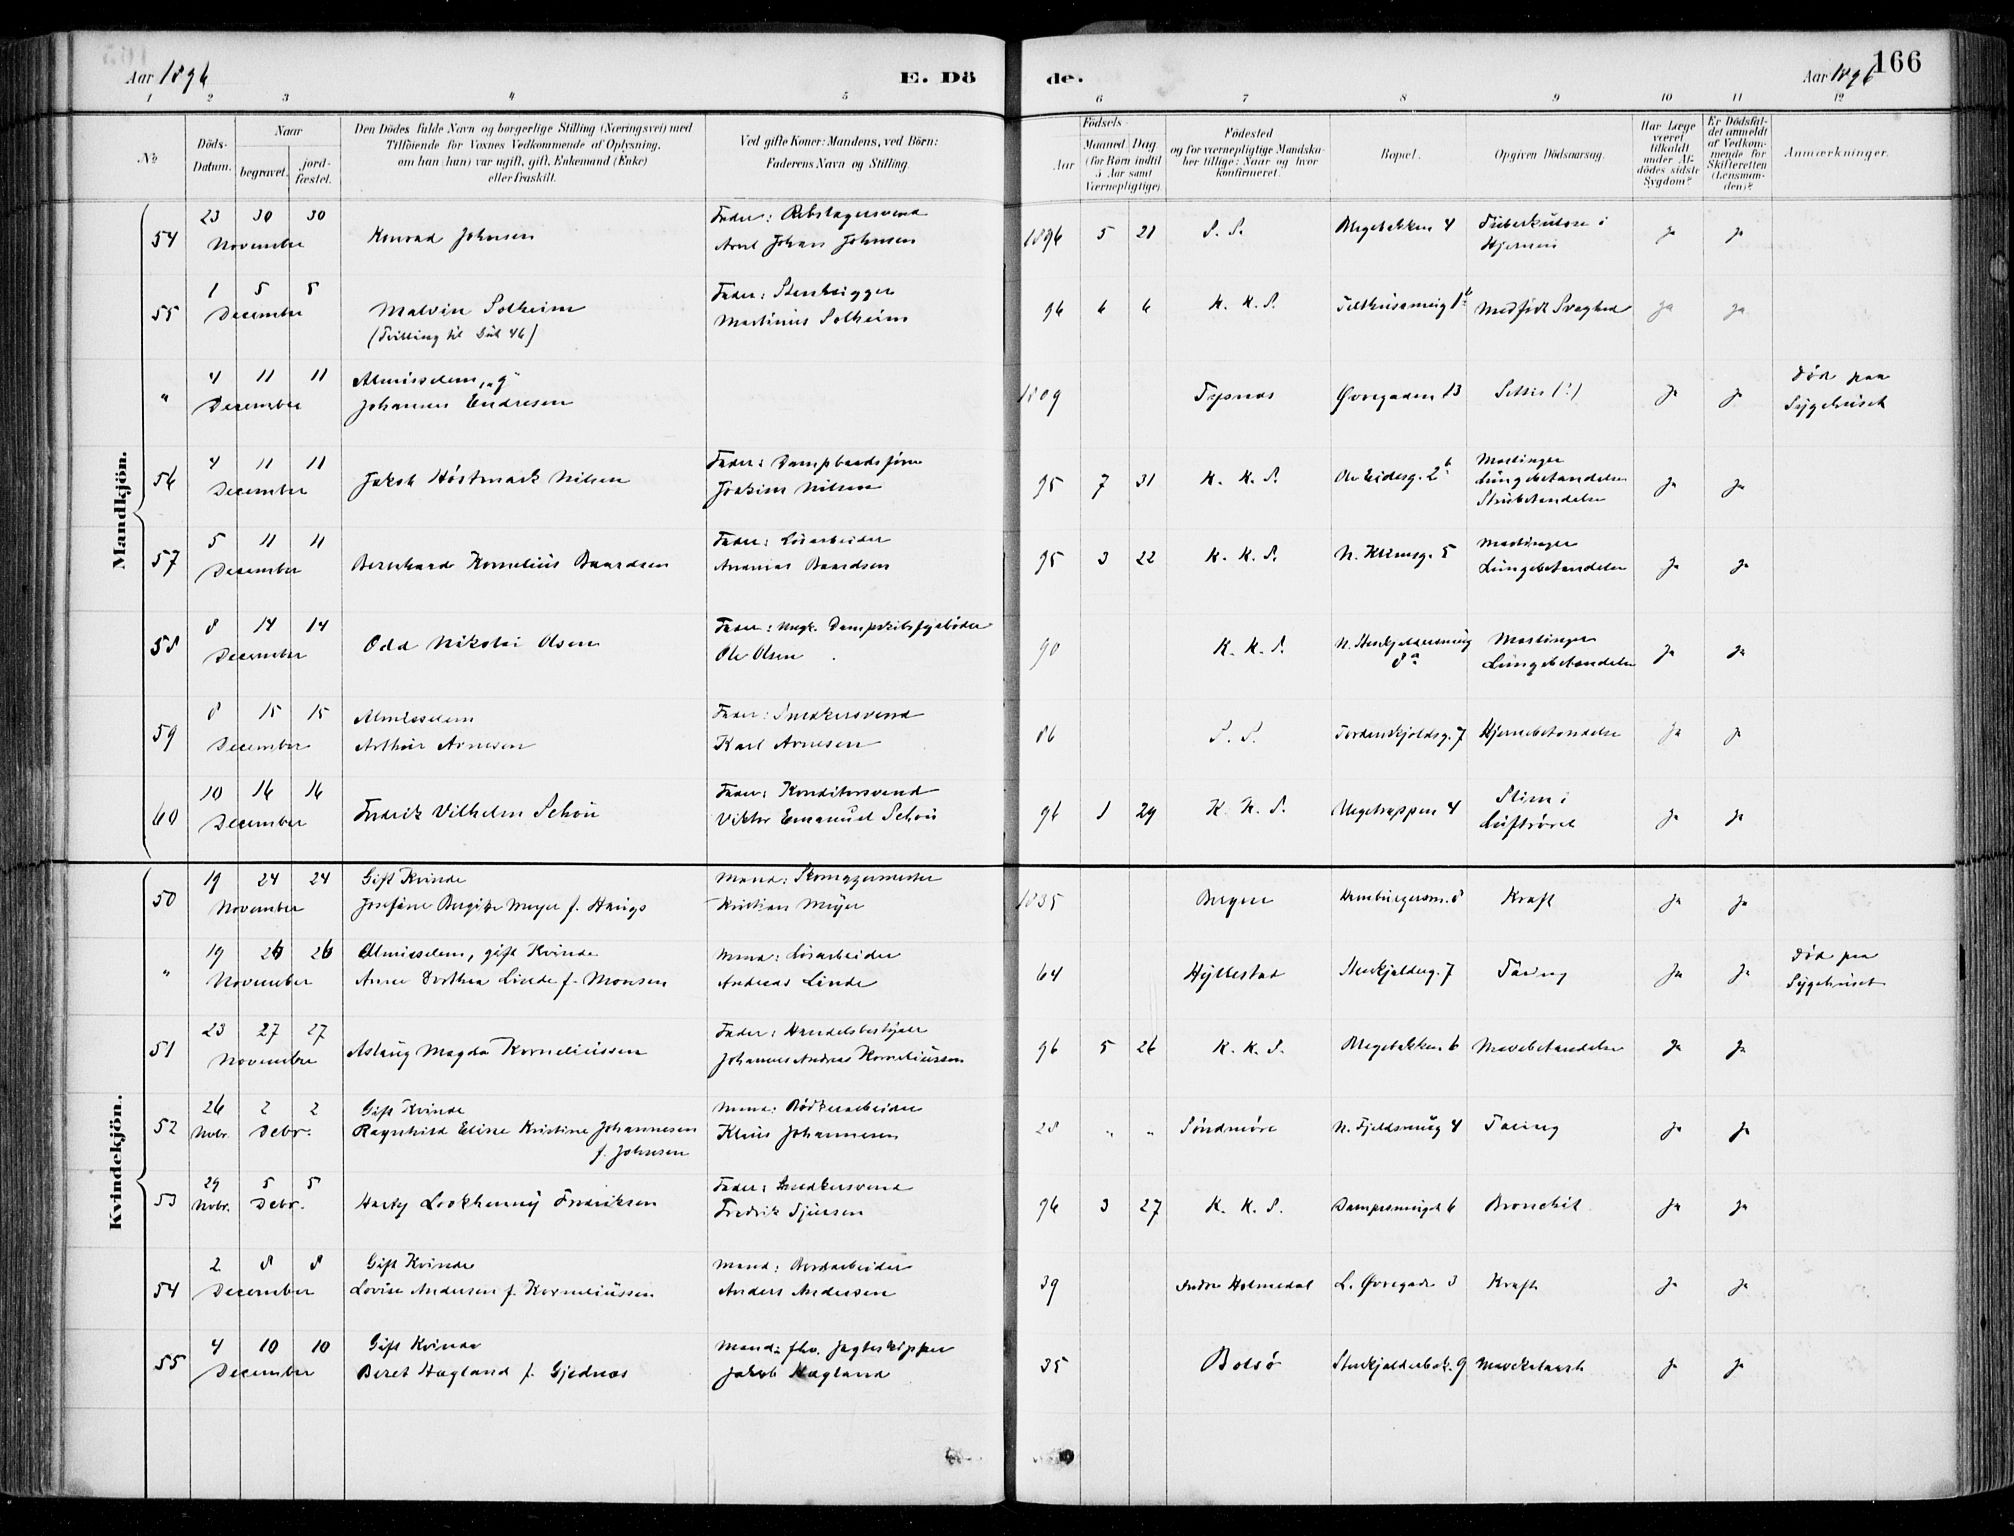 Aar 1896
E. Dö
de.
Aar 1896
166
1 2 3 4 5 6 7 8 9 10 11 12
№
Döds-
Datum.
Naar
begravet.
jord-
fæstet.
Den Dödes fulde Navn og borgerlige Stilling (Næringsvei) med
Tilföiende for Voxnes Vedkommende af Oplysning,
om han (hun) var ugift, gift, Enkemand (Enke)
eller fraskilt.
Ved gifte Koner: Mandens, ved Börn:
Faderens Navn og Stilling
Födsels
Aar
Maaned
Dag
(for Börn indtil
5 Aar samt
Værnepligtige)
Födested
og for værnepligtige Mandska-
ber tillige: Naar og hvor
konfirmeret.
Bopæl.
Opgiven Dödsaarsag.
Har Læge
været
tilkaldt
under Af-
dödes sidste
Sygdom?
Er Dödsfal-
det anmeldt
af Vedkom-
mende for
Skifteretten
(Lensman-
den)?
Anmærkninger.
Mandkjön.
54 23 30 30
November
Konrad Johnsen
Fader: Rebslagersvend
Johan Johnsen
1896 5 21 S. S. Møgebakken 4 Tuberkulose i
Hjernen
ja ja
55 1 5 5
December
Malvin Solheim
(Tvilling til Døb 46)
Fader: Stenhugger
Martinus Solheim
96 6 6 K. K. S. Medfødt Svaghed ja ja
" 4 11 11
December
Almisselem, "g"
Johannes Endresen
1809 Tysnes Øvregaden 13 (?) ja ja
Død paa
Sygehuset
56 4 11 11
December
Jakob Høstmark Nilsen
Fader: Dampbaadsfører
Joakim Nilsen
95 7 31 K. K. S. Ole Eidesg. 2b Mæslinger
Lungebetændelse
Strubetændelse
ja ja
57 5 11 11
December
Bernhard Kornelius Baardsen
Fader: Løsarbeider
Ananias Baardsen
95 3 22 K. K. S. N. 5 Mæslinger
Lungebetændelse
ja ja
58 8 14 14
December
Odd Nikolai Olsen
Fader: Dampskibsfyrbøder
Ole Olsen
90 K. K. S. N. Stenkjeldersmug
8a
Mæslinger
Lungebetændelse
ja ja
59 8 15 15
December
Almisselem
Arthur Arnesen
Fader: Snedkersvend
Karl Arnesen
86 S. S. Tordenskjoldsg. 7 Hjernebetændelse ja ja
60 10 16 16
December
Fredrik Vilhelm Schøn
Fader: Konditorsvend
Viktor Emanuel Schøn
96 1 29 K. K. S. 4 Slim i
Luftrøret
ja ja
Kvindekjön.
50 19 24 24
November
Gift Kvinde
Josefine Birgitte Meyer f. Haugs
Mand: Skomagermester
Kristian Meyer
1835 Bergen Hamburgersm. 8 Kræft ja ja
" 19 26 26
November
Almisselem, gift Kvinde
Anne Dorthea Linde f. Monsen
Mand: Løsarbeider
Andreas Linde
64 Hyllestad Stenkjelderg. 7 Tæring ja ja
Død paa
Sygehuset
51 23 27 27
November
Aslaug Magda Korneliussen
Fader: Handelsbestyrer
Johannes Andreas Korneliussen
96 5 26 K. K. S. Møgebakken 6 Mavebetændelse ja ja
52 26 2 2
Novbr. Decbr.
Gift Kvinde
Ragnhild Eline Kristine Johannesen
f. Johnsen
Mand: Bødkerarbeider
Klaus Johannesen
28 " " Søndmøre N. Fjeldsmug 4 Tæring ja ja
53 29 5 5
Novbr. Decbr.
Fredriksen
Fader: Snedkersvend
Fredrik Sjursen
96 3 27 K. K. S. 6 Bronchit ja ja
54 2 8 8
December
Gift Kvinde
Lovise Andersen f. Korneliussen
Mand: Jordarbeider
Anders Andersen
39 Indre Holmedal L. Øvregade 3 Kræft ja ja
55 4 10 10
December
Gift Kvinde
Beret Hagland f. Gjednæs
Mand: fhv. Jagteskipper
Jakob Hagland
35 Bolsø Stenkjelderbak. 9 Mavekatarrh ja ja